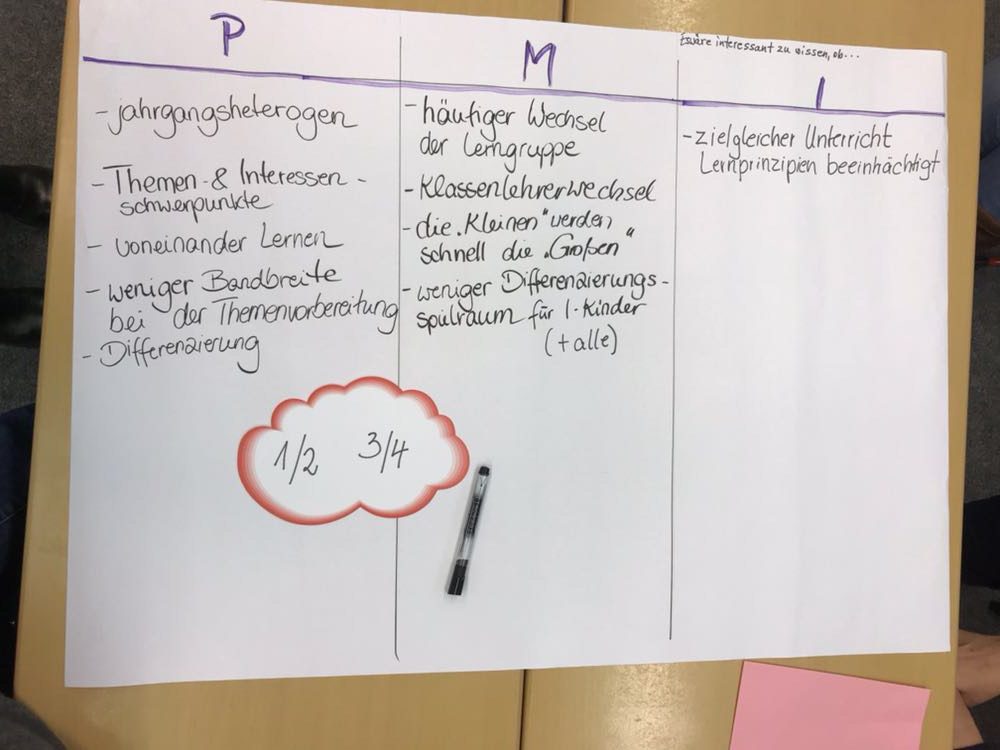 P
- jahrgangsheterogen
- Themen- & Interessen-
schwerpunkte
- voneinander Lernen
- weniger Bandbreite
bei der Themenvorbereitung
- Differenzierung
M
- häufiger Wechsel
der Lerngruppe
- Klassenlehrerwechsel
- die "Kleinen" werden
schnell die "Großen"
- weniger Differenzierungs-
spielraum für I-Kinder
(+ alle)
Es wäre interessant zu wissen, ob...
I
- zielgleicher Unterricht
Lernprinzipien beeinhächtigt
1/2 3/4